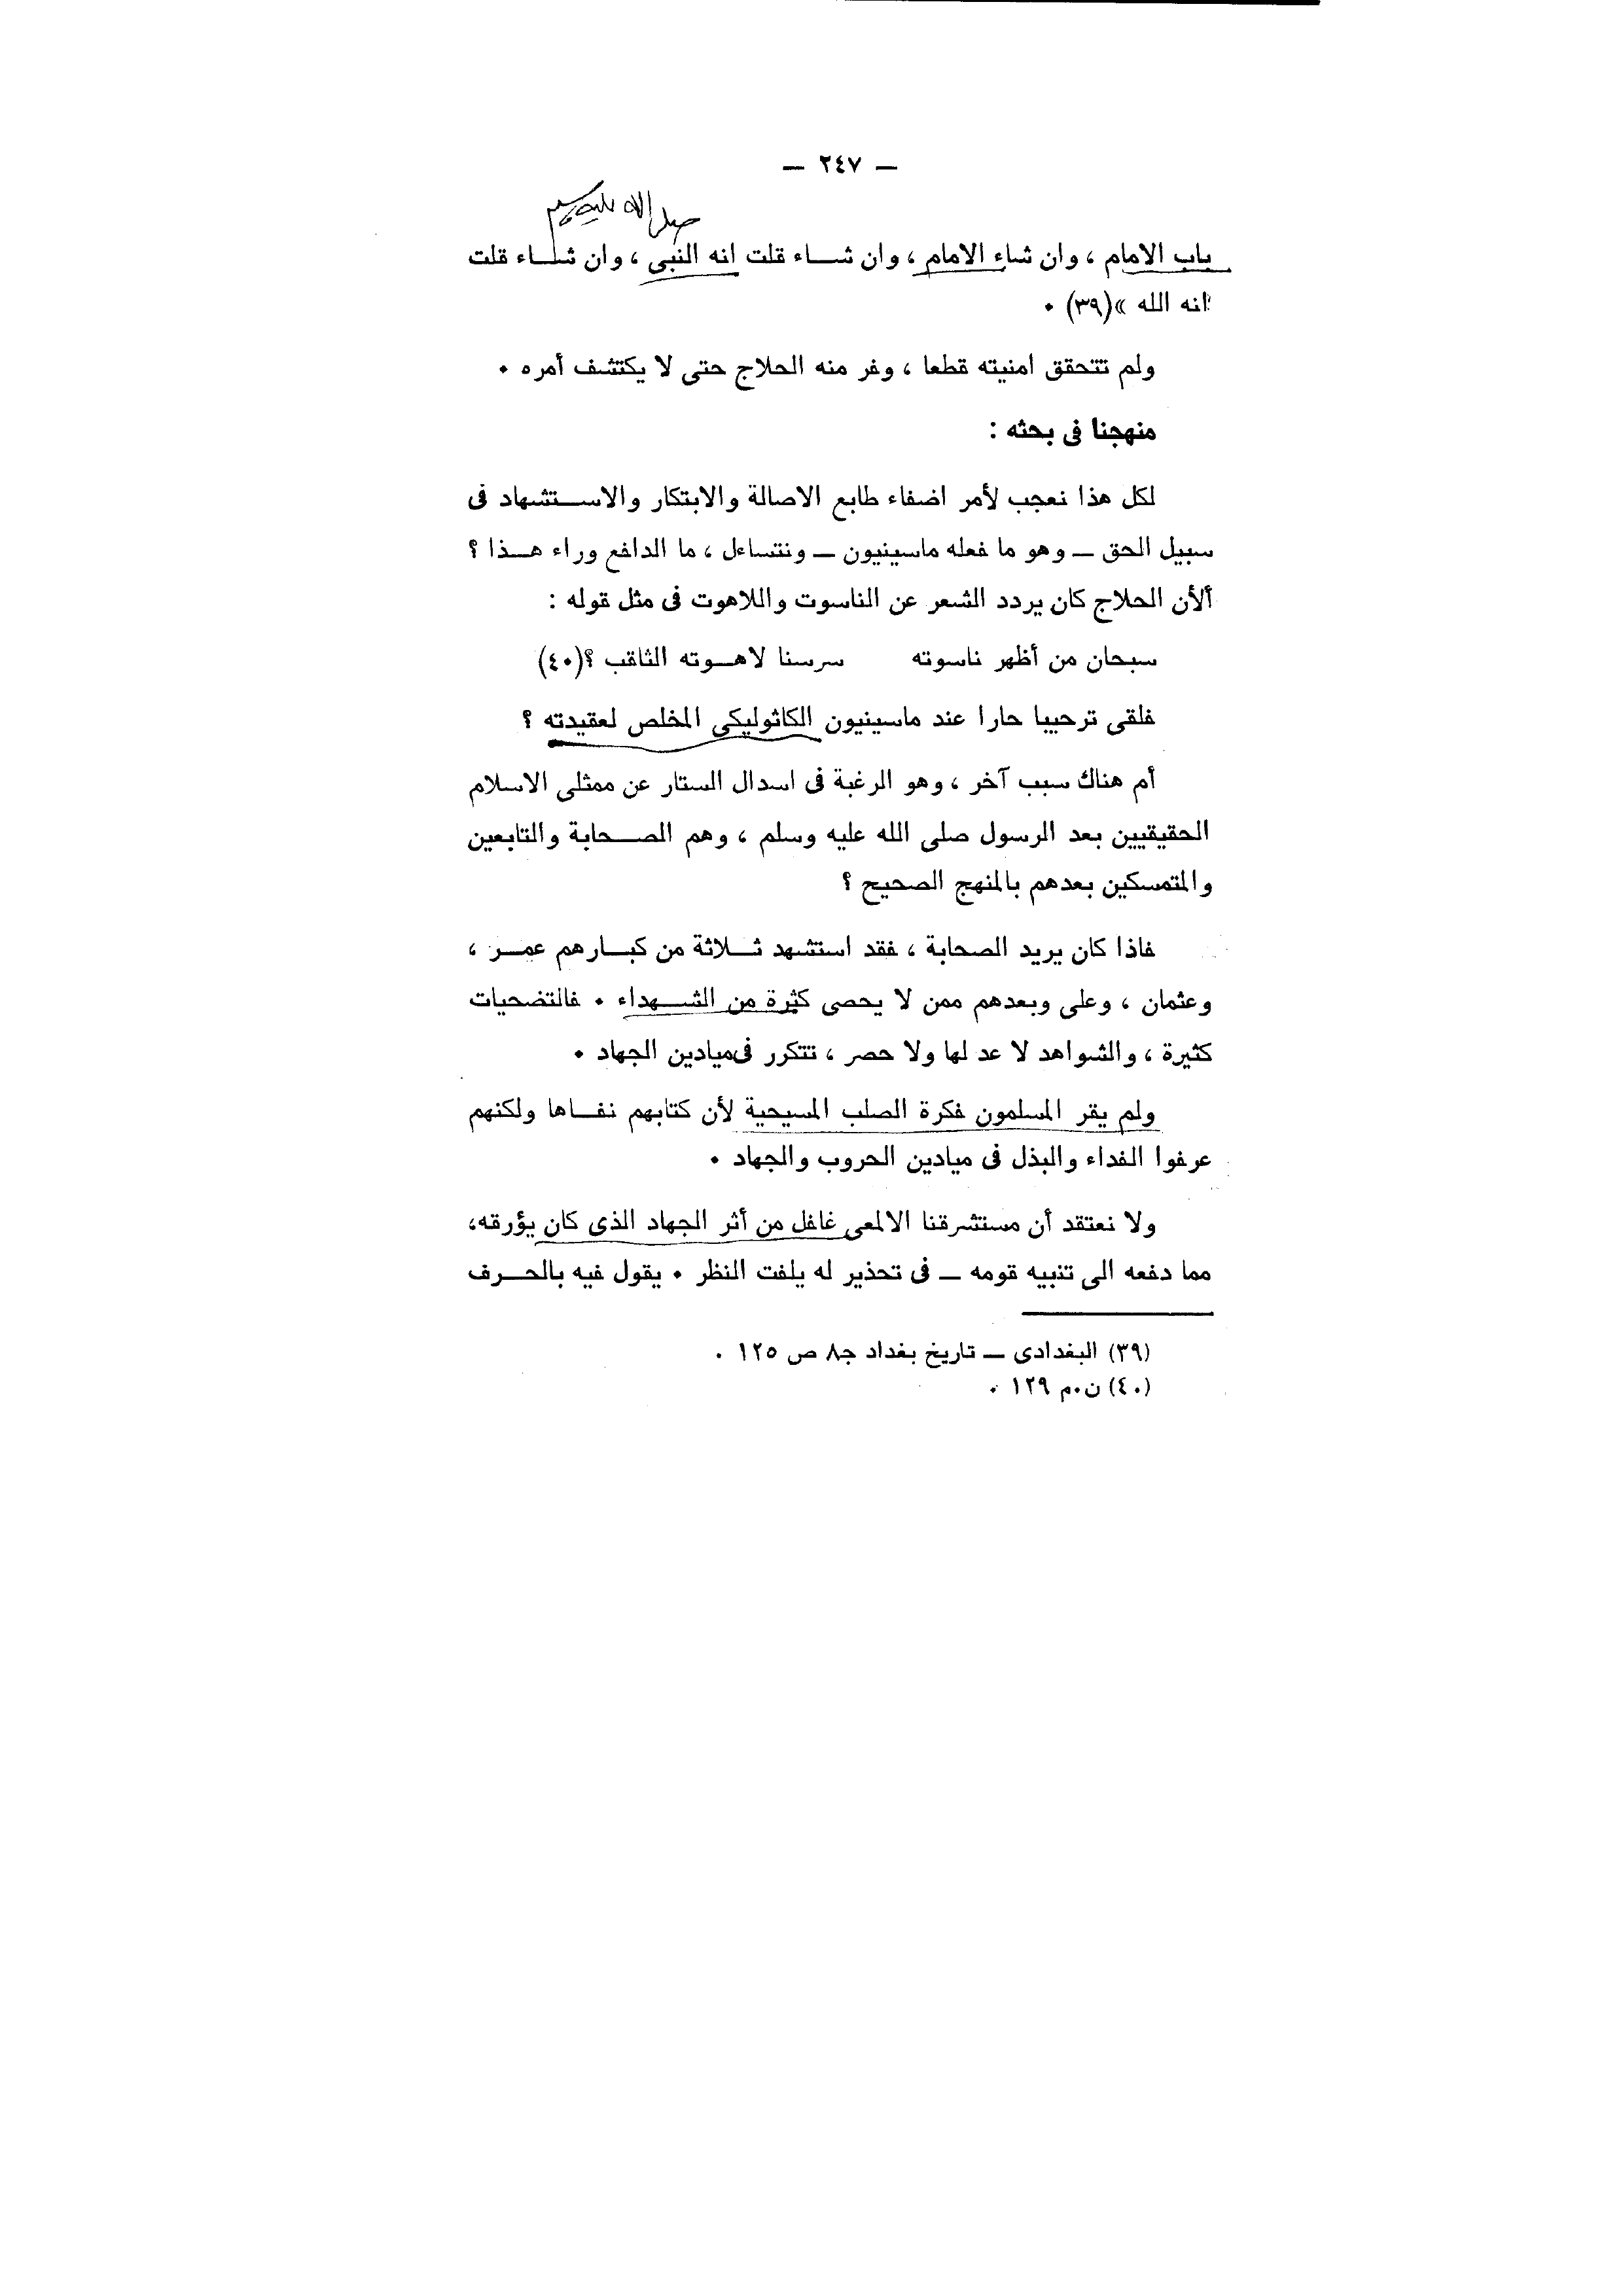 — ٢٤٧ —
صلى الله عليه وسلم
باب الامام ، وان شاء الامام ، وان شـــاء قلت انه النبى ، وان شـــاء قلت
انه الله »(٣٩) ٠
ولم تتحقق امنيته قطعا ، وفر منه الحلاج حتى لا يكتشف أمره ٠
منهجنا فى بحثه :
لكل هذا نعجب لأمر اضفاء طابع الاصالة والابتكار والاســـتشهاد فى
سبيل الحق — وهو ما فعله ماسينيون — ونتساءل ، ما الدافع وراء هــذا ؟
ألأن الحلاج كان يردد الشعر عن الناسوت واللاهوت فى مثل قوله :
سبحان من أظهر ناسوته سرسنا لاهــوته الثاقب ؟(٤٠)
فلقى ترحيبا حارا عند ماسينيون الكاثوليكى المخلص لعقيدته ؟
أم هناك سبب آخر ، وهو الرغبة فى اسدال الستار عن ممثلى الاسلام
الحقيقيين بعد الرسول صلى الله عليه وسلم ، وهم الصــحابة والتابعين
والمتمسكين بعدهم بالمنهج الصحيح ؟
فاذا كان يريد الصحابة ، فقد استشهد ثـــلاثة من كبــارهم عمــر ،
وعثمان ، وعلى وبعدهم ممن لا يحصى كثرة من الشـــهداء ٠ فالتضحيات
كثيرة ، والشواهد لا عد لها ولا حصر ، تتكرر فى ميادين الجهاد ٠
ولم يقر المسلمون فكرة الصلب المسيحية لأن كتابهم نفــاها ولكنهم
عرفوا الفداء والبذل فى ميادين الحروب والجهاد ٠
ولا نعتقد أن مستشرقنا الالمعى غافل من أثر الجهاد الذى كان يؤرقه،
مما دفعه الى تنبيه قومه — فى تحذير له يلفت النظر ٠ يقول فيه بالحــرف
(٣٩) البغدادى — تاريخ بغداد ج٨ ص ١٢٥ ٠
(٤٠) ن٠م ١٢٩ ٠